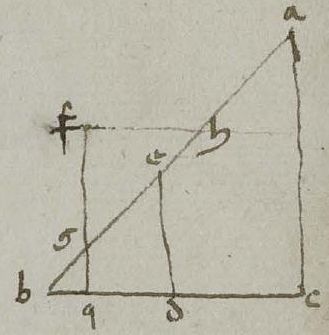 a
f h
e
g
b q d c